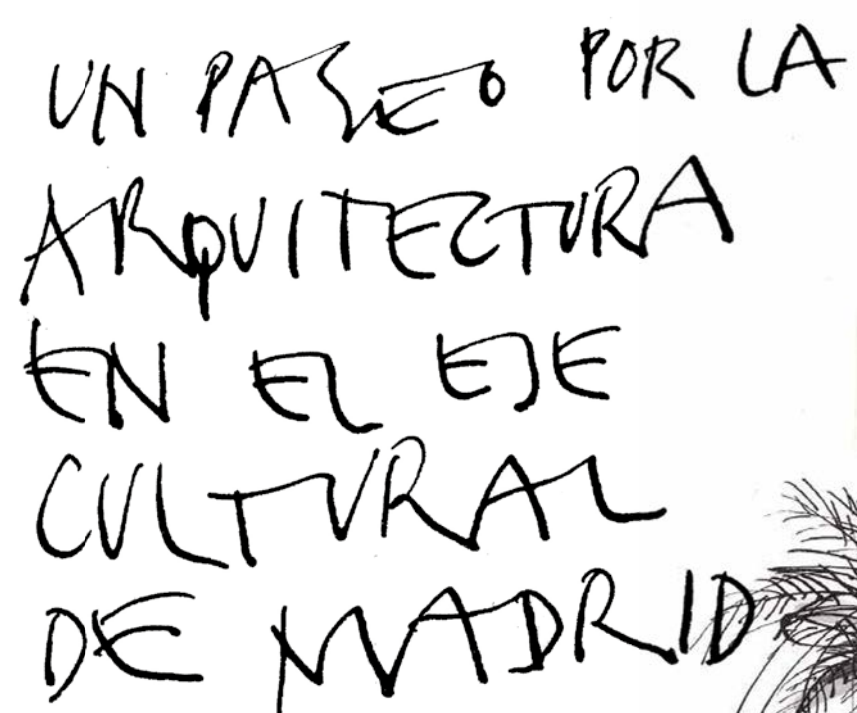 UN PASEO POR LA
ARQUITECTURA
EN EL EJE
CULTURAL
DE MADRID